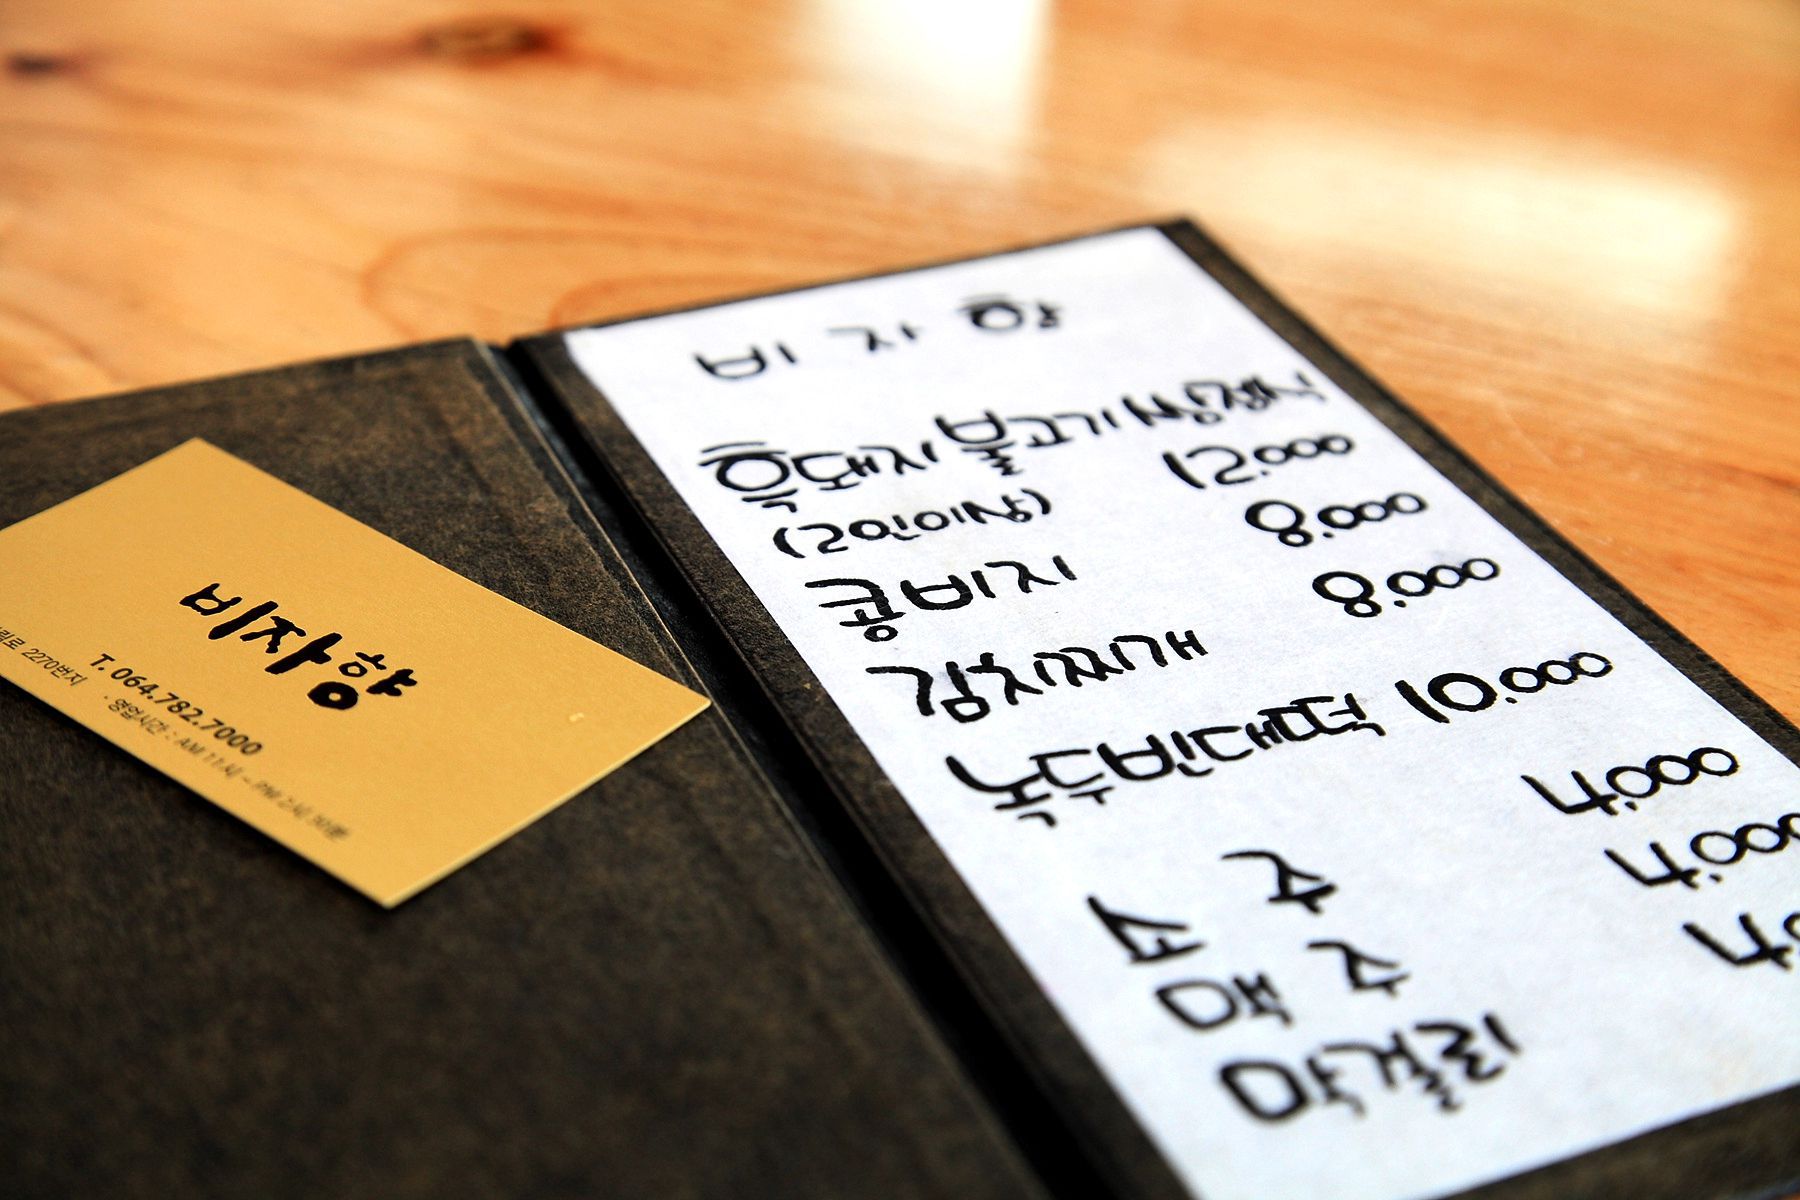 비자향
2270번지
T. 064.782.7000
·영업시간 : AM 11시 ~ PM
비 자 향
흑돼지불고기쌈정식
(2인이상) 12.000
콩비지 8.000
김치찌개 8.000
녹두빈대떡 10.000
소 주 4.000
맥 주 4.000
막걸리